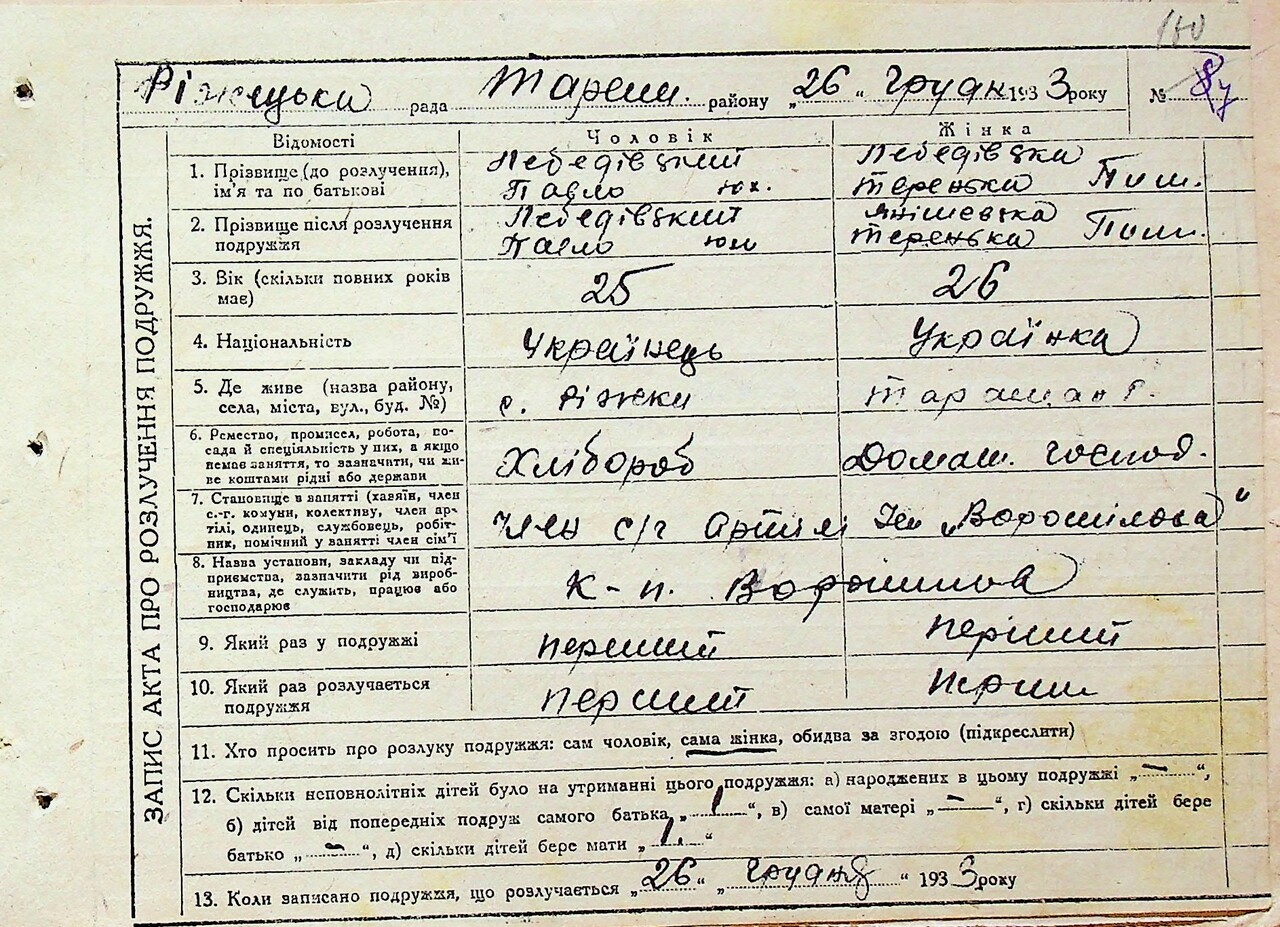 180
Ріжецька рада Таращ. району „26“ Грудн 1933 року № 87
Відомості Чоловік Жінка
1. Прізвище (до розлучення), ім'я та по батькові
Лебедівський
Павло Юх.
Лебедівська
Теренька Пим.
2. Прізвище після розлучення подружжя
Лебедівський
Павло Юх
Янішевська
Теренька Пим.
3. Вік (скільки повних років має)
25
26
4. Національність
Українець
Українка
5. Де живе (назва району, села, міста, вул., буд. №)
с. Ріжки
6. Ремество, промисел, робота, по-
сада й спеціяльність у них, а якщо
немає заняття, то зазначити, чи жи-
ве коштами рідні або держави
Хлібороб
Домаш. господ.
7. Становище в занятті (хазяїн, член
с.-г. комуни, колективу, член ар-
тілі, одинець, службовець, робіт-
ник, помічний у занятті член сім'ї
Член с/г Артілі Ім „Ворошілова“
8. Назва установи, закладу чи під-
приємства, зазначити рід вироб-
ництва, де служить, працює або
господарює
К-п. Ворошилова
9. Який раз у подружжі
перший
перший
10. Який раз розлучається
подружжя
перший
перши
11. Хто просить про розлуку подружжя: сам чоловік, сама жінка, обидва за згодою (підкреслити)
12. Скільки неповнолітніх дітей було на утриманні цього подружжя: а) народжених в цьому подружжі „—“,
б) дітей від попередніх подруж самого батька „1“, в) самої матері „—“, г) скільки дітей бере
батько „—“, д) скільки дітей бере мати „1.“
13. Коли записано подружжя, що розлучається „26“ „Грудня“ 1933 року
ЗАПИС АКТА ПРО РОЗЛУЧЕННЯ ПОДРУЖЖЯ.